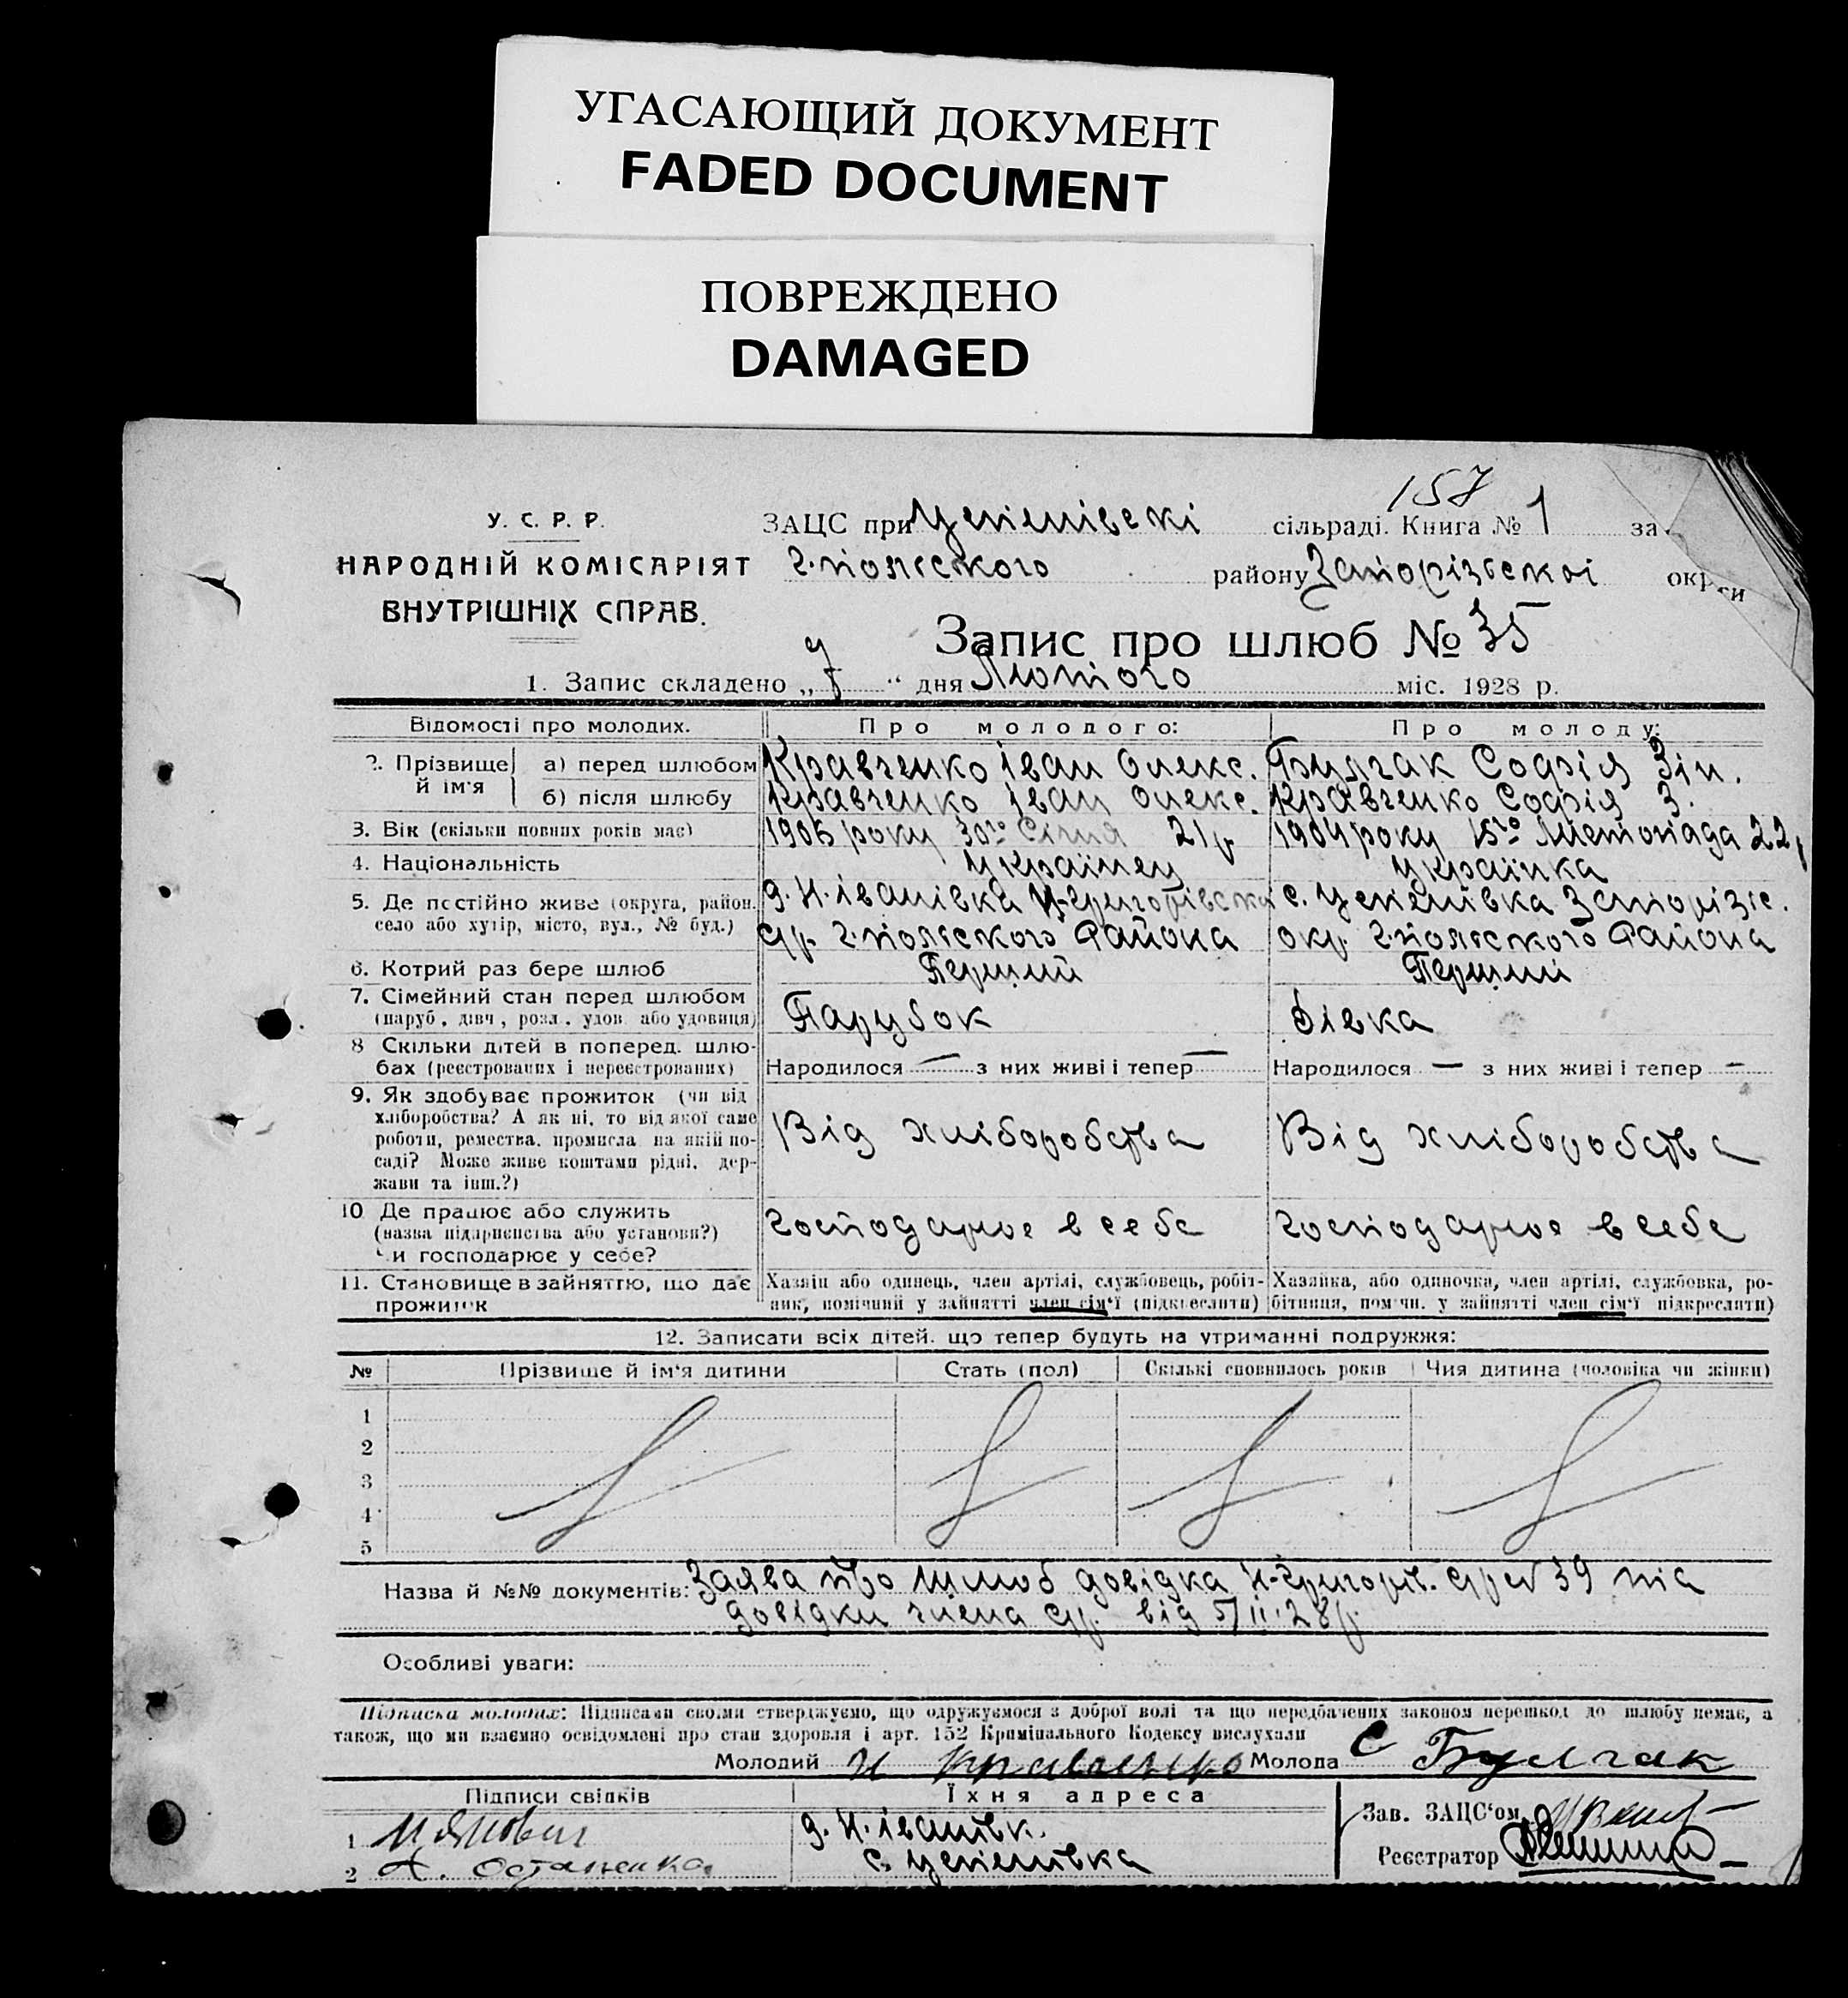 УГАСАЮЩИЙ ДОКУМЕНТ
FADED DOCUMENT
ПОВРЕЖДЕНО
DAMAGED
157
У. С. Р. Р.
НАРОДНІЙ КОМІСАРІЯТ
ВНУТРІШНІХ СПРАВ.
ЗАЦС при сільраді. Книга № 1 за
району Запорізської округи
Запис про шлюб № 35
1. Запис складено „7“ дня Лютого міс. 1928 р.
Відомості про молодих. Про молодого: Про молоду:
2. Прізвище й ім'я а) перед шлюбом Кравченко Іван Олекс. Булгак Софія Зін.
б) після шлюбу Кравченко Іван Олекс. Кравченко Софія З.
3. Вік (скільки повних років має) року 30го Січня 21 р. 1904 року 15го Листопада 22 р
4. Національність Українец Українка
5. Де постійно живе (округа, район, село або хутір, місто, вул., № буд.) д. Н. Іванівка Н-Григорівской
ср. району с.
окр. району
6. Котрий раз бере шлюб Перший Перший
7. Сімейний стан перед шлюбом
(паруб., дівч., розл., удов. або удовиця) Парубок Дівка
8 Скільки дітей в поперед. шлюбах (реєстрованих і нереєстрованих) Народилося — з них живі і тепер — Народилося — з них живі і тепер —
9. Як здобуває прожиток (чи від
хліборобства? А як ні, то від якої саме
роботи, ремества, промисла на якій по-
саді? Може живе коштами рідні, дер-
жави та інш.?) Від хліборобства Від хліборобства
10 Де працює або служить
(назва підприємства або установи?)
Чи господарює у себе? господарює в себе господарює в себе
11. Становище в зайняттю, що дає
прожиток
Хазяїн або одинець, член артілі, службовець, робіт-
ник, помічний у зайнятті член сім'ї (підкреслити)
Хазяйка, або одиночка, член артілі, службовка, ро-
бітниця, помічн. у зайнятті член сім'ї підкреслити)
12. Записати всіх дітей, що тепер будуть на утриманні подружжя:
№ Прізвище й ім'я дитини Стать (пол) Скількі сповнилось років Чия дитина (чоловіка чи жінки)
1
2
3
4
5
Назва й №№ документів: Заява про шлюб довідка Н-Григорів. ср № 39 та
довідки члена ср. від 5/II-28 р.
Особливі уваги:
Підписка молодих: Підписами своїми стверджуємо, що одружуємося з доброї волі та що передбачених законом перешкод до шлюбу немає, а
також, що ми взаємно освідомлені про стан здоровля і арт. 152 Кримінального Кодексу вислухали
Молодий И Кравченко Молода С Булгак
Підписи свідків Їхня адреса
1 д. Н. Іванівк.
2 А. Остапенко с.
Зав. ЗАЦС'ом
Реєстратор